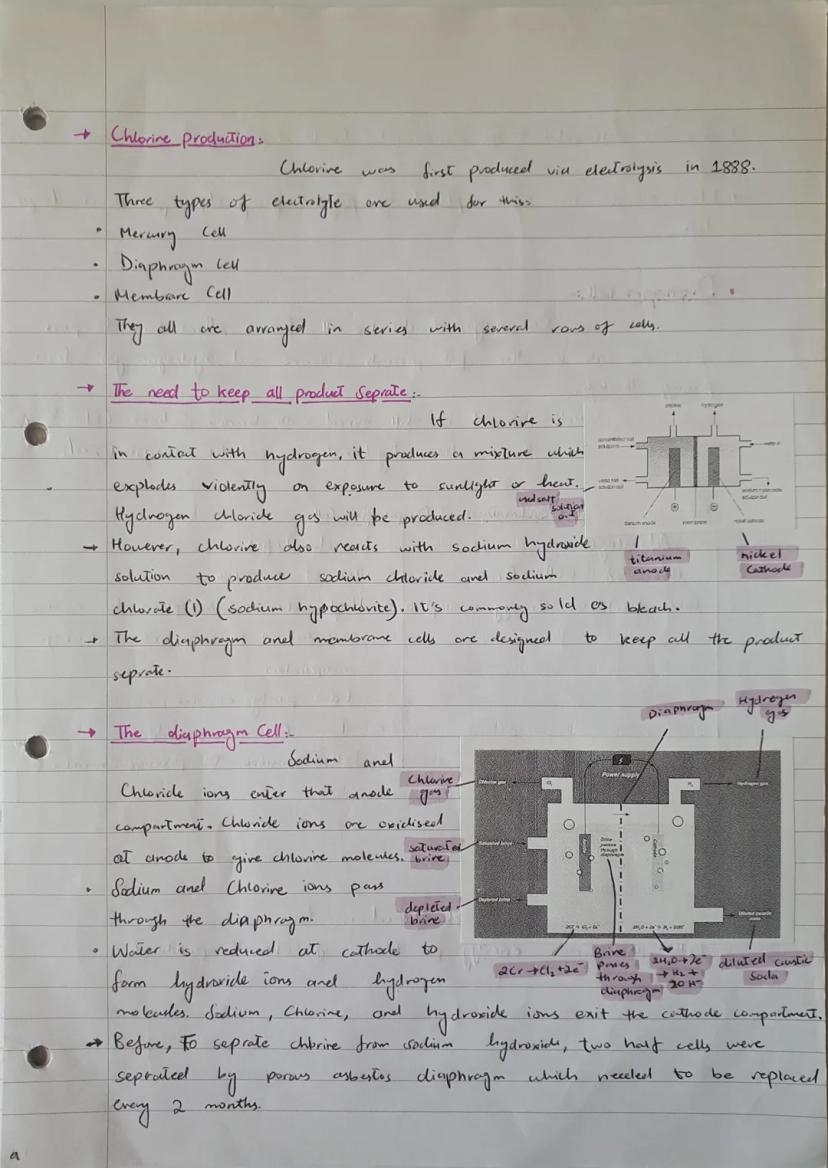 → Chlorine production:
Chlorine was first produced via electrolysis in 1888.
Three types of electrolyte are used for this:
• Mercury Cell
• Diaphragm Cell
• Membrane Cell
They all are arranged in series with several rows of cells.
→ The need to keep all product Seprate:-
If chlorine is
in contact with hydrogen, it produces a mixture which
explodes violently on exposure to sunlight or heat.
Hydrogen chloride gas will be produced.
→ However, chlorine also reacts with sodium hydroxide
solution to produce sodium chloride and sodium
chlorate (1) (sodium hypochlorite). It's commonly sold as bleach.
→ The diaphragm and membrane cells are designed to keep all the product
seprate.
chlorine
hydrogen
used salt
solution
out
titanium
anode
nickel
Cathode
→ The diaphragm Cell:-
Sodium and
Chloride ions enter that anode
compartment. Chloride ions are oxidised
at anode to give chlorine molecules.
• Sodium and Chlorine ions pass
through the diaphragm.
• Water is reduced at cathode to
form hydroxide ions and hydrogen
molecules. Sodium, Chlorine, and hydroxide ions exit the cathode compartment.
→ Before, To seprate chlorine from sodium hydroxide, two half cells were
seprated by porous asbestos diaphragm which needed to be replaced
every 2 months.
Diaphragm
Hydrogen
gas
Chlorine
gas
saturated
brine
depleted
brine
Power supply
Chlorine gas
Cl₂
H₂
Hydrogen gas
Saturated brine
Depleted brine
Brine
passes
through
diaphragm
Cathode
Diluted caustic
soda
2Cl⁻→Cl₂+2e⁻
Brine
Passes
through
diaphragm
2H₂O+2e⁻
→ H₂ +
2OH⁻
diluted caustic
Soda
a